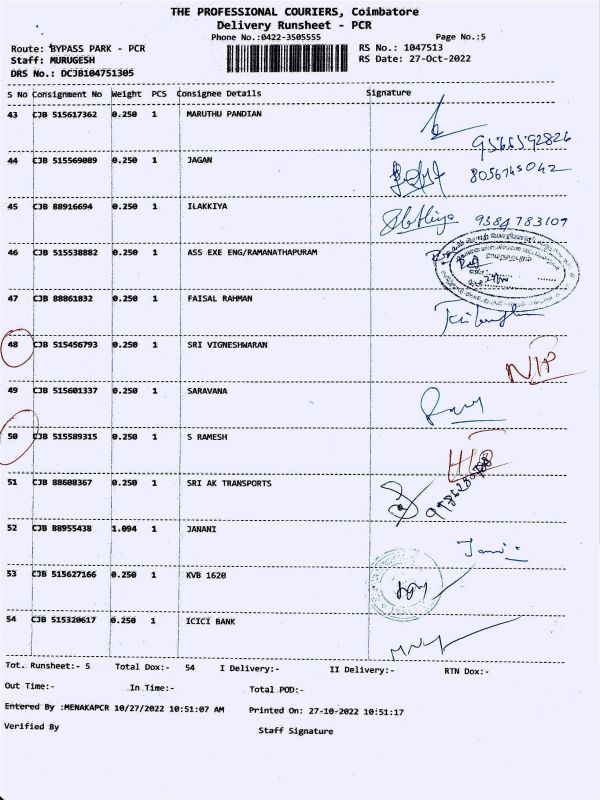 THE PROFESSIONAL COURIERS, Coimbatore
Delivery Runsheet - PCR
Phone No.:0422-3505555 Page No.:5
Route: BYPASS PARK - PCR RS No.: 1047513
Staff: MURUGESH RS Date: 27-Oct-2022
DRS No.: DCJB104751305
S No Consignment No Weight PCS Consignee Details Signature
43 CJB 515617362 0.250 1 MARUTHU PANDIAN
44 CJB 515569089 0.250 1 JAGAN 8056745042
45 CJB 88916694 0.250 1 ILAKKIYA 9384783109
46 CJB 515538882 0.250 1 ASS EXE ENG/RAMANATHAPURAM
47 CJB 88861832 0.250 1 FAISAL RAHMAN
48 CJB 515456793 0.250 1 SRI VIGNESHWARAN
49 CJB 515601337 0.250 1 SARAVANA
50 CJB 515589315 0.250 1 S RAMESH
51 CJB 88608367 0.250 1 SRI AK TRANSPORTS
52 CJB 88955438 1.094 1 JANANI
53 CJB 515627166 0.250 1 KVB 1620
54 CJB 515320617 0.250 1 ICICI BANK
Tot. Runsheet:- 5 Total Dox:- 54 I Delivery:- II Delivery:- RTN Dox:-
Out Time:- In Time:- Total POD:-
Entered By :MENAKAPCR 10/27/2022 10:51:07 AM Printed On: 27-10-2022 10:51:17
Verified By Staff Signature